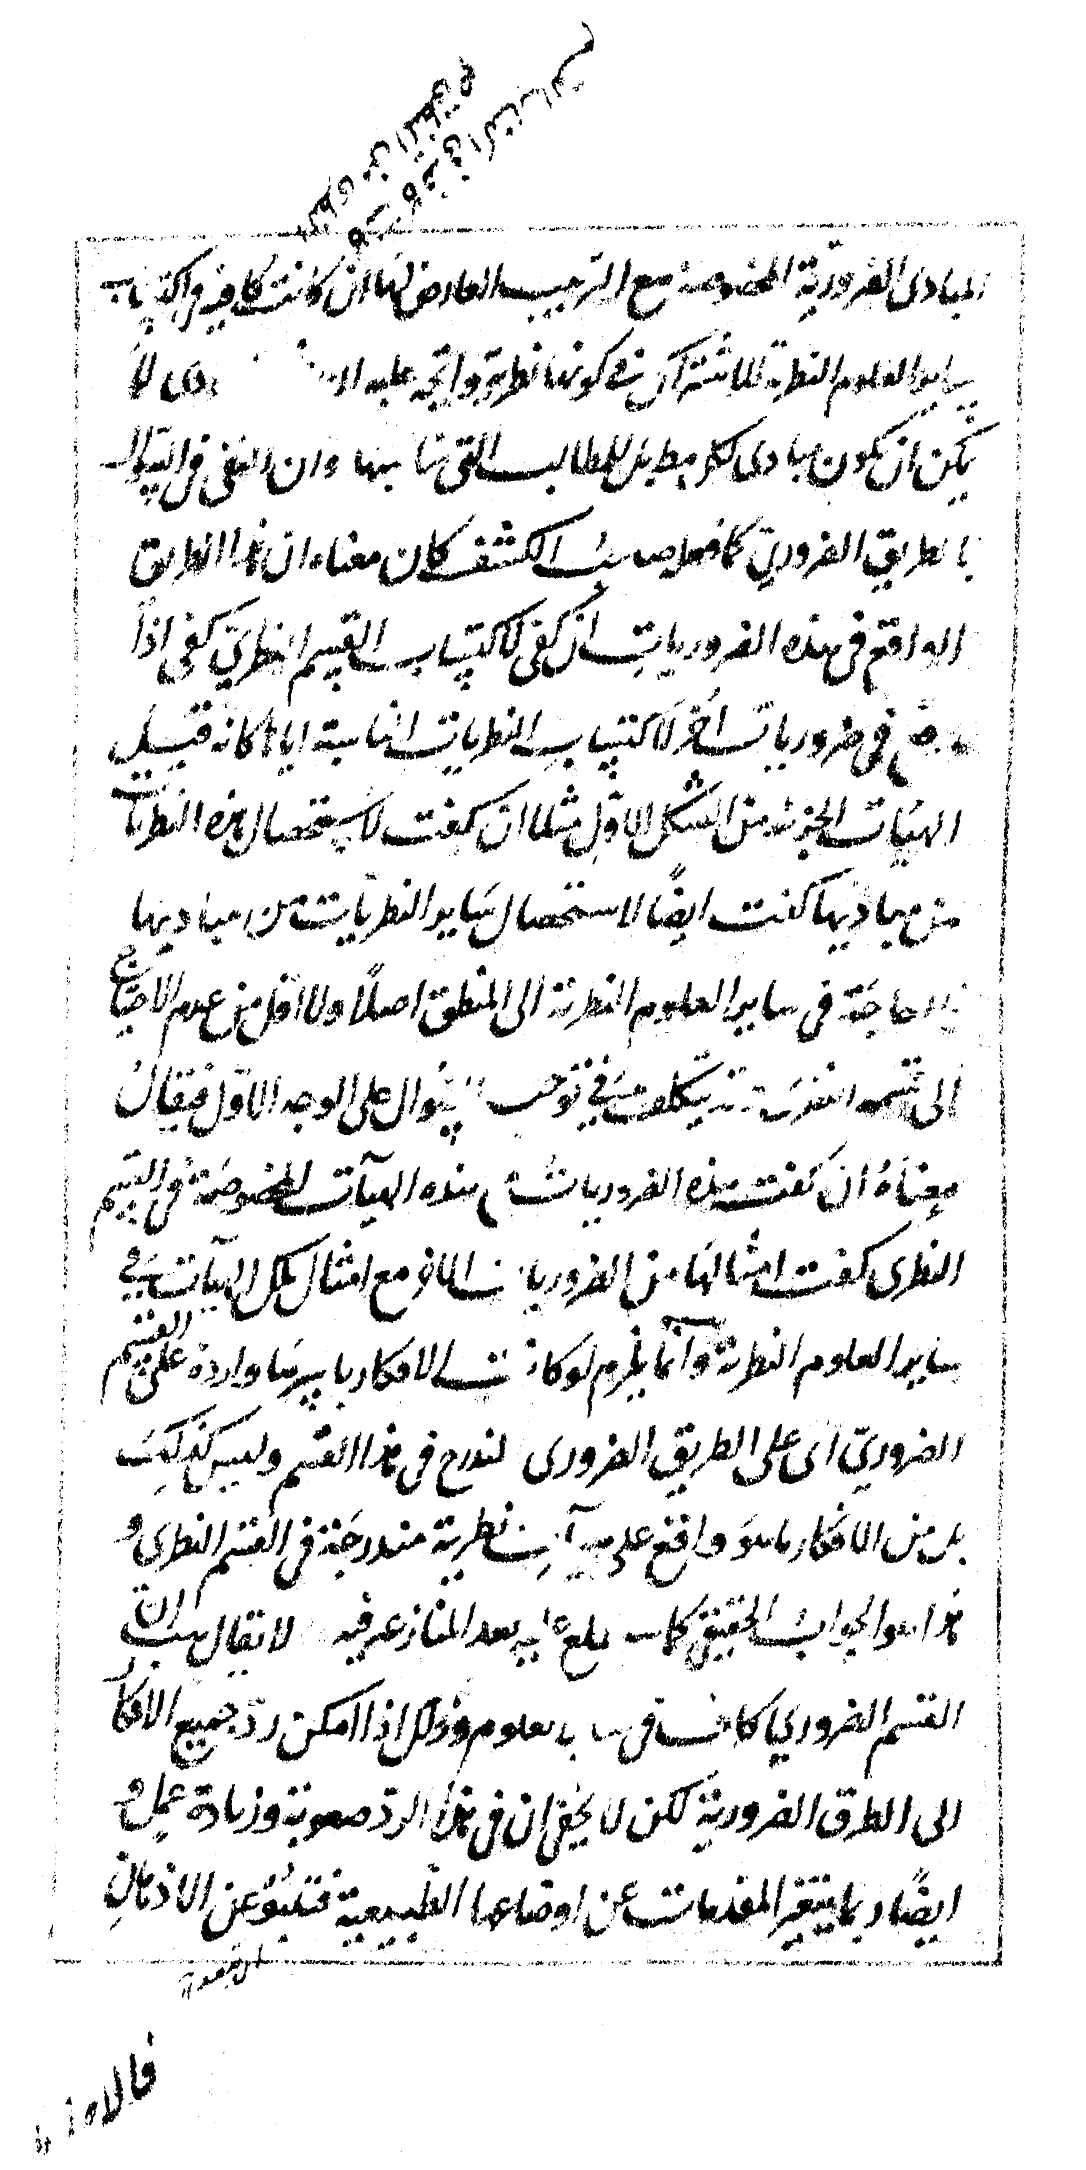 المبادى الضرورية المخصوصة مع الترتيب العارض لها ان كانت كافية فى اكتساب
ساير العلوم النظرية للاشتراك فى كونها نظرية واتجه عليه لا
يمكن ان يكون مبادى كل مطلب للمطالب التى تناسبها وان اكتفى فى السؤال
بالطريق الضرورى كما فعله صاحب الكشف كان معناه ان هذا الطريق
الواقع فى هذه الضروريات ان كفى لاكتساب القسم النظرى كفى اذا
وقع فى ضروريات اخر لاكتساب النظريات المناسبة اياها كانه قيل
الهيئات الجزئية من الشكل الاول مثلا ان كفت لاستحصال هذه النظريات
من مباديها كفت ايضًا لاستحصال ساير النظريات من مباديها
فلا حاجة فى ساير العلوم النظرية الى المنطق اصلًا ولا اقل من عدم الاحتياج
الى قسمه يتكلف فى توجيه السؤال على الوجه الاول فيقال
معناه ان كفت هذه الضروريات مع هذه الهيآت المخصوصة فى القسم
النظرى كفت امثالها من الضروريات الاخر مع امثال تلك الهيآت فى
ساير العلوم النظرية وانما يلزم لو كانت الافكار باسرها واردة على القسم
الضرورى اى على الطريق الضرورى لتدرج فى هذا القسم وليس كذلك
بل من الافكار ما هو واقع على هيآت نظرية مندرجة فى القسم النظرى و
هذا هو الجواب الحقيقى كما ستطلع عليه بعد المنازعة فيه لا يقال هب ان
القسم الضرورى كاف فى ساير العلوم وذلك اذا امكن رد جميع الافكار
الى الطرق الضرورية لكن لا يخفى ان فى هذا الرد صعوبة وزيادة عمل و
ايضًا ربما يتغير المقدمات عن اوضاعها الطبيعية فتنبو عن الاذهان